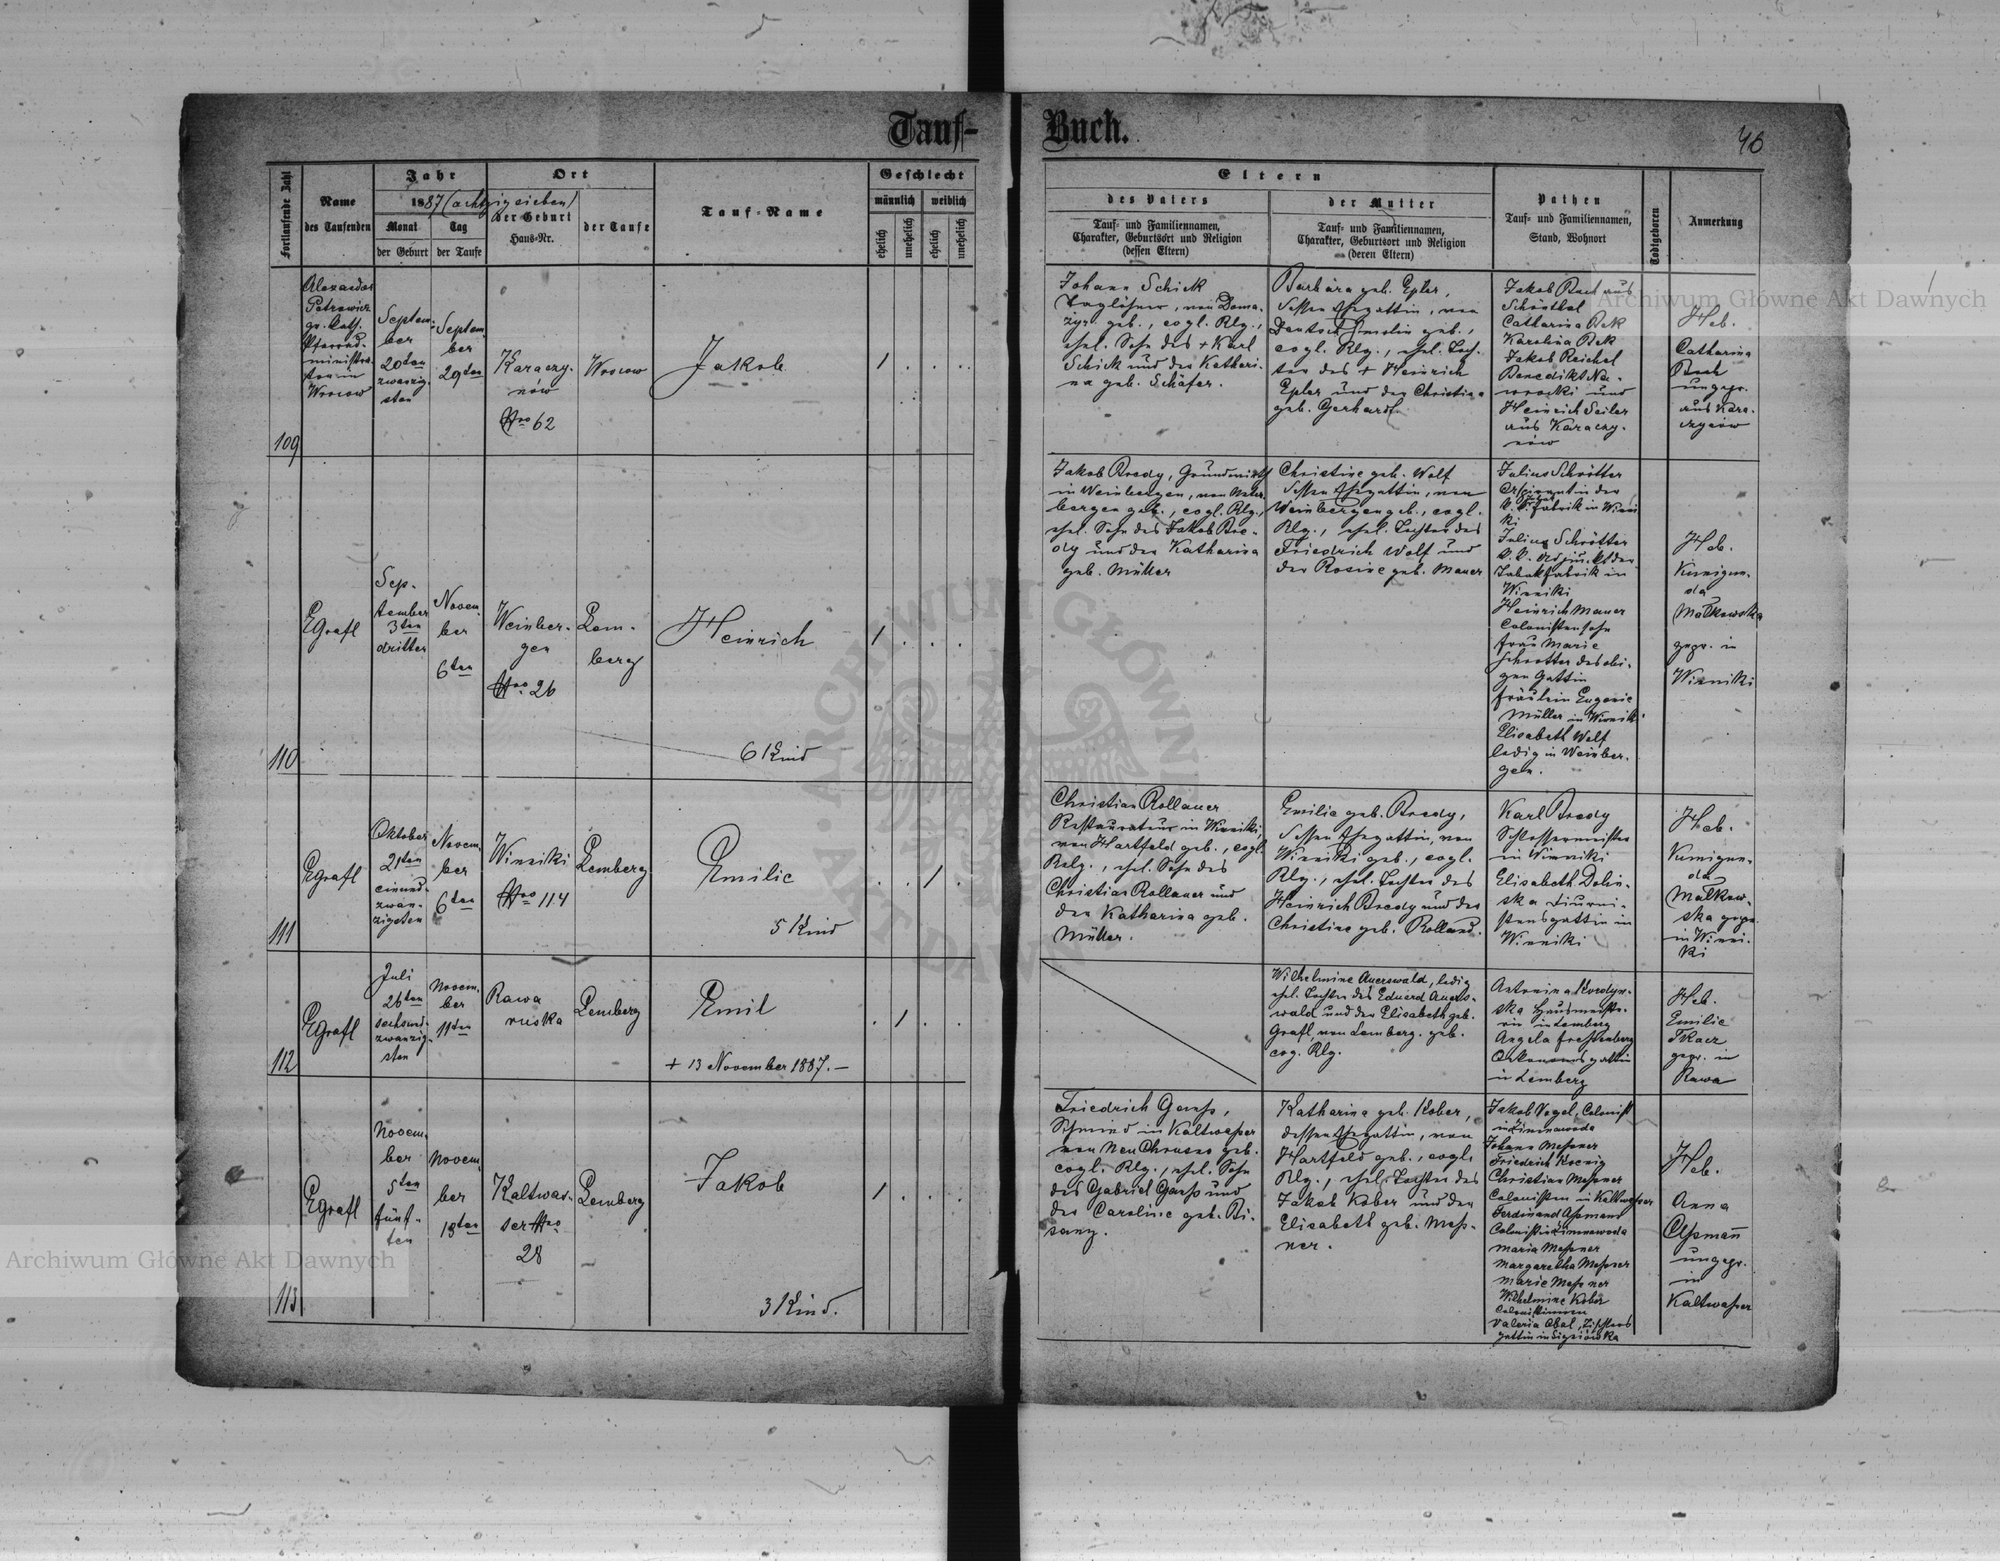 Tauf-Buch.
46
Fortlaufende Zahl
Name
des Taufenden
Jahr
1887 (achtzigsieben)
Monat
Tag
der Geburt
der Taufe
Ort
der Geburt
Haus-Nr.
der Taufe
Tauf-Name
Geschlecht
männlich
weiblich
ehelich
unehelich
ehelich
unehelich
Eltern
des Vaters
Tauf- und Familiennamen,
Charakter, Geburtsort und Religion
(dessen Eltern)
der Mutter
Tauf- und Familiennamen,
Charakter, Geburtsort und Religion
(deren Eltern)
Pathen
Tauf- und Familiennamen,
Stand, Wohnort
Todtgeboren
Anmerkung
109
Alexander
Petrowicz
gr. kath.
Pfarrad-
ministra-
tor in
Wrocow
Septem-
ber
20ten
zwanzig-
sten
Septem-
ber
29ten
Karaczy-
nów
Nro 62
Wrocow
Jakob
1 . . .
Johann Schick
Taglöhner, von Doma-
zyr geb., evgl. Rlg.,
ehel. Sohn des + Karl
Schick und der Kathari-
na geb. Schäfer.
Barbara geb. Epler,
dessen Ehegattin, von
geb.,
evgl. Rlg., ehel. Toch-
ter des + Heinrich
Epler und der Christina
geb. Gerhardt.
Jakob aus
Schönthal
Catharina Bek
Karolina Bek
Jakob Reichel
Benedikt Na-
wrocki und
Heinrich Seiler
aus Karaczy-
nów
Heb.
Catharina
ungepr.
aus Kara-
czynow
110
EGrafl
Sep-
tember
3ten
dritter
Novem-
ber
6ten
Weinber-
gen
Nro 26
Lem-
berg
Heinrich
6 Kind
1 . . .
Jakob Bredy, Grundwirth
in Weinbergen, von Wein-
bergen geb., evgl. Rlg.,
ehel. Sohn des Jakob Bre-
dy und der Katharina
geb. Müller
Christine geb. Wolf
dessen Ehegattin, von
Weinbergen geb., evgl.
Rlg., ehel. Tochter des
Friedrich Wolf und
der Rosine geb. Mauer
Julius Schrötter
in der
k. k. Fabrik in Winni-
ki
Julius Schrötter
k. k. Adjunkt der
Tabakfabrik in
Winniki
Heinrich Mauer
Colonistensohn
Frau Marie
Schrötter des obi-
gen Gattin
Fräulein Eugenie
Müller in Winniki
Elisabeth Wolf
ledig in Weinber-
gen.
Heb.
Kunigun-
da
Małkowska
gepr. in
Winniki
111
EGrafl
Oktober
21ten
einund-
zwan-
zigsten
Novem-
ber
6ten
Winniki
Nro 114
Lemberg
Emilie
5 Kind
. . 1 .
Christian Rollauer
Restaurateur in Winniki,
von Hartfeld geb., evgl.
Relg., ehel. Sohn des
Christian Rollauer und
der Katharina geb.
Müller.
Emilie geb. Bredy,
dessen Ehegattin, von
Winniki geb., evgl.
Rlg., ehel. Tochter des
Heinrich Bredy und der
Christine geb. Rolland.
Karl Bredy
Schlossermeister
in Winniki
Elisabeth Dolin-
ska Diurni-
stensgattin in
Winniki
Heb.
Kunigun-
da
Małkow-
ska gepr.
in Winni-
ki
112
EGrafl
Juli
26ten
sechsund-
zwanzig-
sten
Novem-
ber
11ten
Rawa
ruska
Lemberg
Emil
+ 13 November 1887. —
. 1 . .
Wilhelmine Auerswald, ledig
ehel. Tochter des Eduard Auers-
wald und der Elisabeth geb.
Grafl, von Lemberg geb.
evg. Rlg.
Antonina Kordyw-
ska Hausmeiste-
rin in Lemberg
Angela
gattin
in Lemberg
Heb.
Emilie
Tkacz
gepr. in
Rawa
113
EGrafl
Novem-
ber
5ten
fünf-
ten
Novem-
ber
18ten
Kaltwas-
ser Nro
28
Lemberg
Jakob
3 Kind.
1 . . .
Friedrich Ganß,
Schmied in Kaltwasser
von Neu Chrusno geb.
evgl. Rlg., ehel. Sohn
des Gabriel Ganß und
der Caroline geb. Bi-
sanz.
Katharina geb. Kober,
dessen Ehegattin, von
Hartfeld geb., evgl.
Rlg., ehel. Tochter des
Jakob Kober und der
Elisabeth geb. Mess-
ner.
Jakob Vogel, Colonist
in Zimnawoda
Johann Messner
Friedrich Koenig
Christian Messner
Colonisten in Kaltwasser
Ferdinand Assmann
Colonist in Zimnawoda
Maria Messner
Margaretha Messner
Marie Messner
Wilhelmine Kober
Colonistinnen
Valeria Abel,
gattin in
Heb.
Anna
Assmann
ungepr.
in
Kaltwasser
Archiwum Główne Akt Dawnych
Archiwum Główne Akt Dawnych
ARCHIWUM GŁÓWNE AKT DAWNYCH